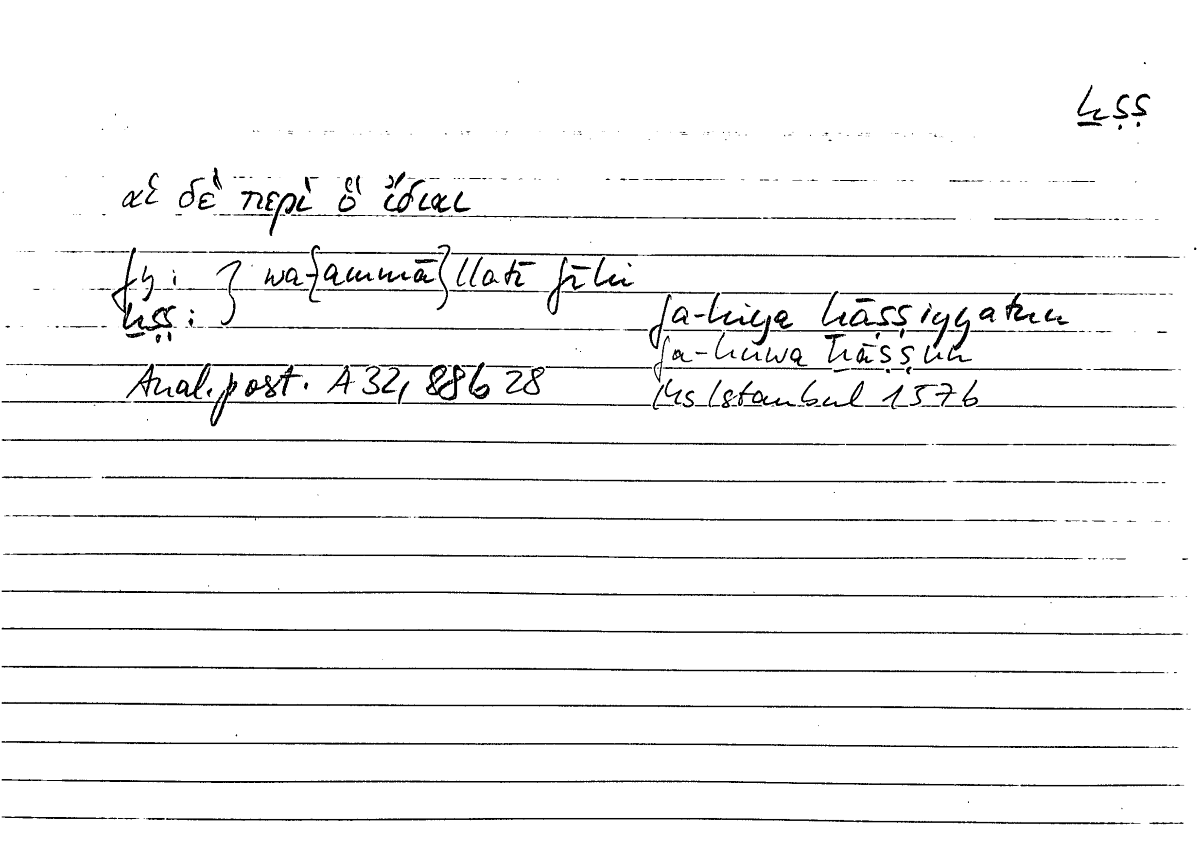 ḫṣṣ
αἱ δὲ περὶ ὃ ἴδιαι
fy: } wa-{ammā}llatī fīhi
ḫṣṣ: fa-hiya ḫāṣṣiyyatun
fa-huwa ḫāṣṣun
Anal. post. A 32, 88b 28 Ms Istanbul 1576